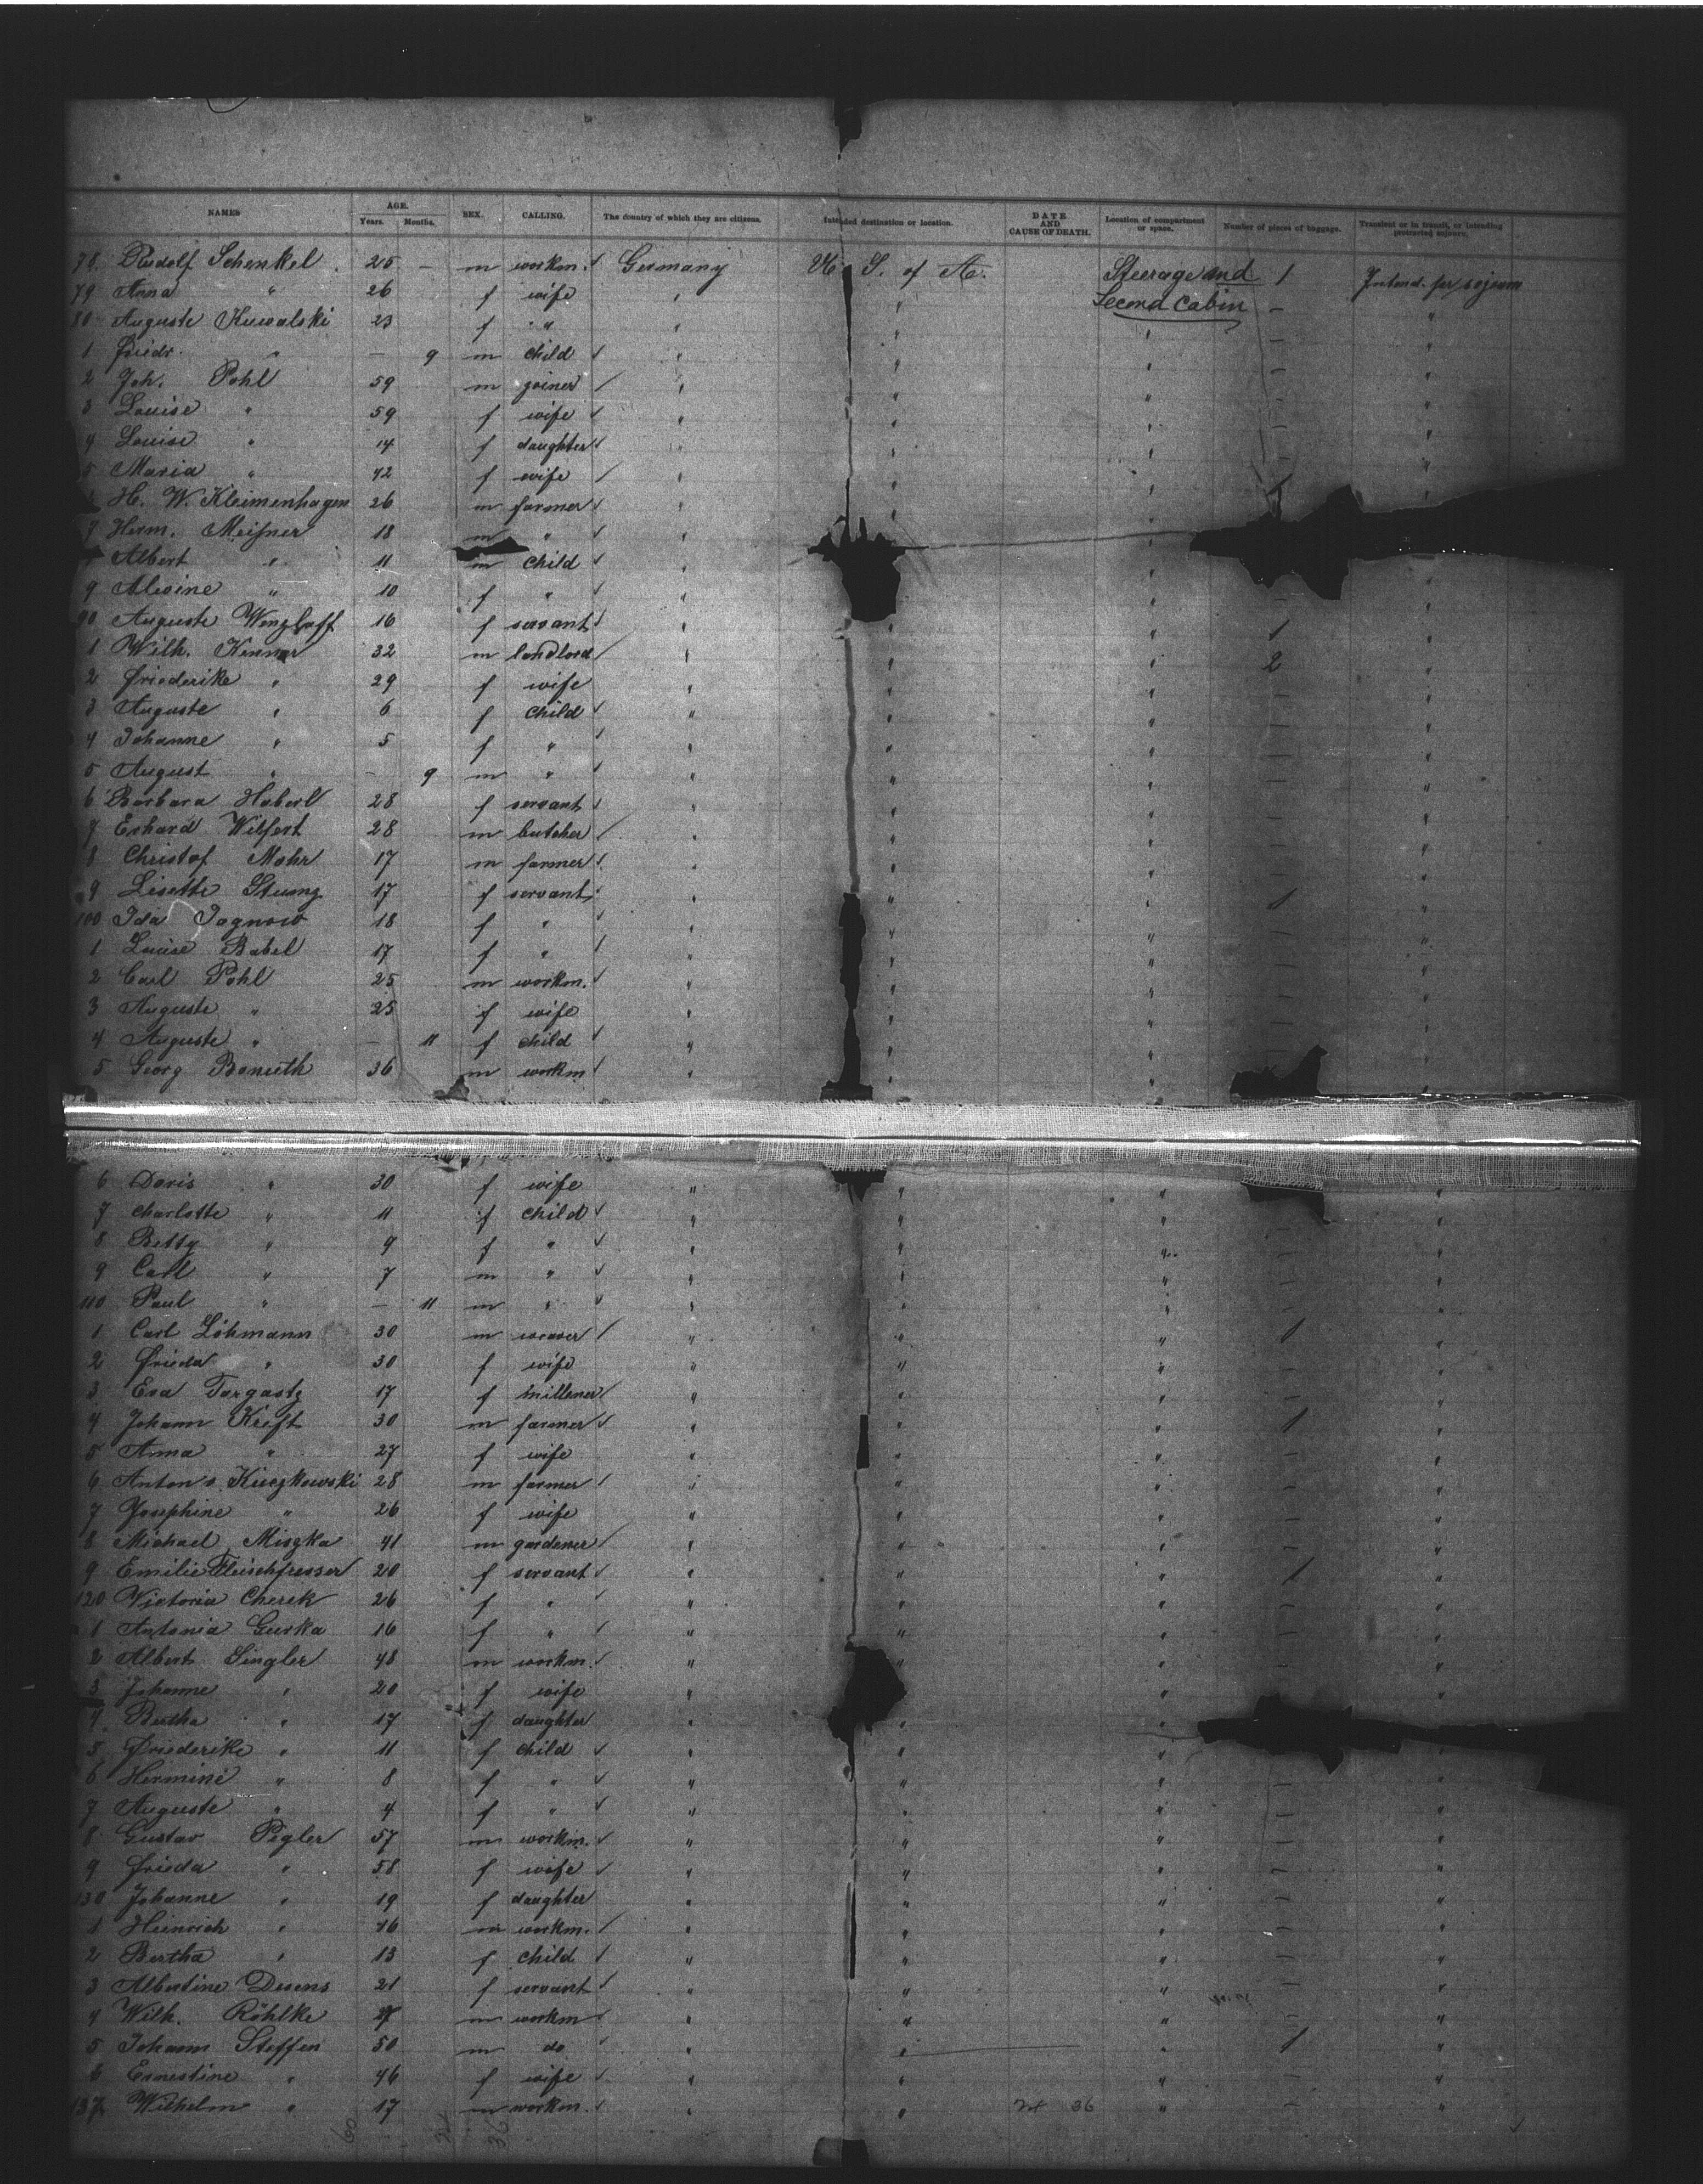 NAMES AGE. Years. Months. SEX. CALLING. The country of which they are citizens. Intended destination or location. DATE AND CAUSE OF DEATH. Location of compartment or space. Number of pieces of baggage. Transient or in transit, or intending protracted sojourn.
78. Rudolf Schenkel 25 — m workm. Germany U. S. of A. Steerage and 1 Intend. for sojourn
79 Anna " 26 f wife " " Second Cabin — "
80 Auguste Kuwalski 23 f " " " " — "
1 Friedr. " — 9 m child " " " — "
2 Joh. Pohl 59 m joiner " " " — "
3 Louise " 59 f wife " " " — "
4 Louise " 14 f daughter " " " — "
5 Maria " 42 f wife " " " — "
H. W. Kleimenhagen 26 m farmer " " " 1 "
7 Herm. Meißner 18 m " " "
Albert " 11 m child " " "
9 Alwine " 10 f " " " " — "
90 Auguste Wenzlaff 16 f servant " " " 1 "
1 Wilh. Kenner 32 m landlord " " " 2 "
2 Friederike " 29 f wife " " " — "
3 Auguste " 6 f child " " " — "
4 Johanne " 5 f " " " " — "
5 August " — 9 m " " " " — "
6 Barbara Haberl 28 f servant " " " — "
7 Erhard Wilfert 28 m butcher " " " — "
8 Christof Mohr 17 m farmer " " " — "
9 Lisette Stumz 17 f servant " " " 1 "
100 Ida Jagnow 18 f " " " " — "
1 Louise Babel 17 f " " " " — "
2 Carl Pohl 25 m workm. " " " — "
3 Auguste " 25 f wife " " " — "
4 Auguste " — 11 f child " " " — "
5 Georg Bonuth 36 m workm " " " "
6 Doris " 30 f wife " " " "
7 Charlotte " 11 f child " " " "
8 Betty " 9 f " " " " — "
9 Carl " 7 m " " " " — "
110 Paul " — 11 m " " " " — "
1 Carl Löhmann 30 m weaver " " " 1 "
2 Frieda " 30 f wife " " " — "
3 Eva Torgastz 17 f millener " " " — "
4 Johann Kreft 30 m farmer " " " 1 "
5 Anna " 27 f wife " " " — "
6 Anton v. Kuczkowski 28 m farmer " " " — "
7 Josephine " 26 f wife " " " — "
8 Michael Miszka 41 m gardener " " " — "
9 Emilie Fleischfresser 20 f servant " " " 1 "
120 Victoria Cherek 26 f " " " " — "
1 Antonia Gurka 16 f " " " " — "
2 Albert Singler 48 m workm. " " " — "
3 Johanne " 20 f wife " " " "
4 Bertha " 17 f daughter " " "
5 Friederike " 11 f child " " " "
6 Hermine " 8 f " " " " — "
7 Auguste " 4 f " " " " — "
8 Gustav Pegler 57 m workm. " " " — "
9 Frieda " 58 f wife " " " — "
130 Johanne " 19 f daughter " " " — "
1 Heinrich " 16 m workm. " " " — "
2 Bertha " 13 f child " " " — "
3 Albertine Desens 21 f servant " " " — "
4 Wilh. Röhlke m workm " " " — "
5 Johann Steffen 50 m do " " " 1 "
6 Ernestine " 46 f wife " " " — "
137 Wilhelm " 17 m workm. " " 24 36 " — "